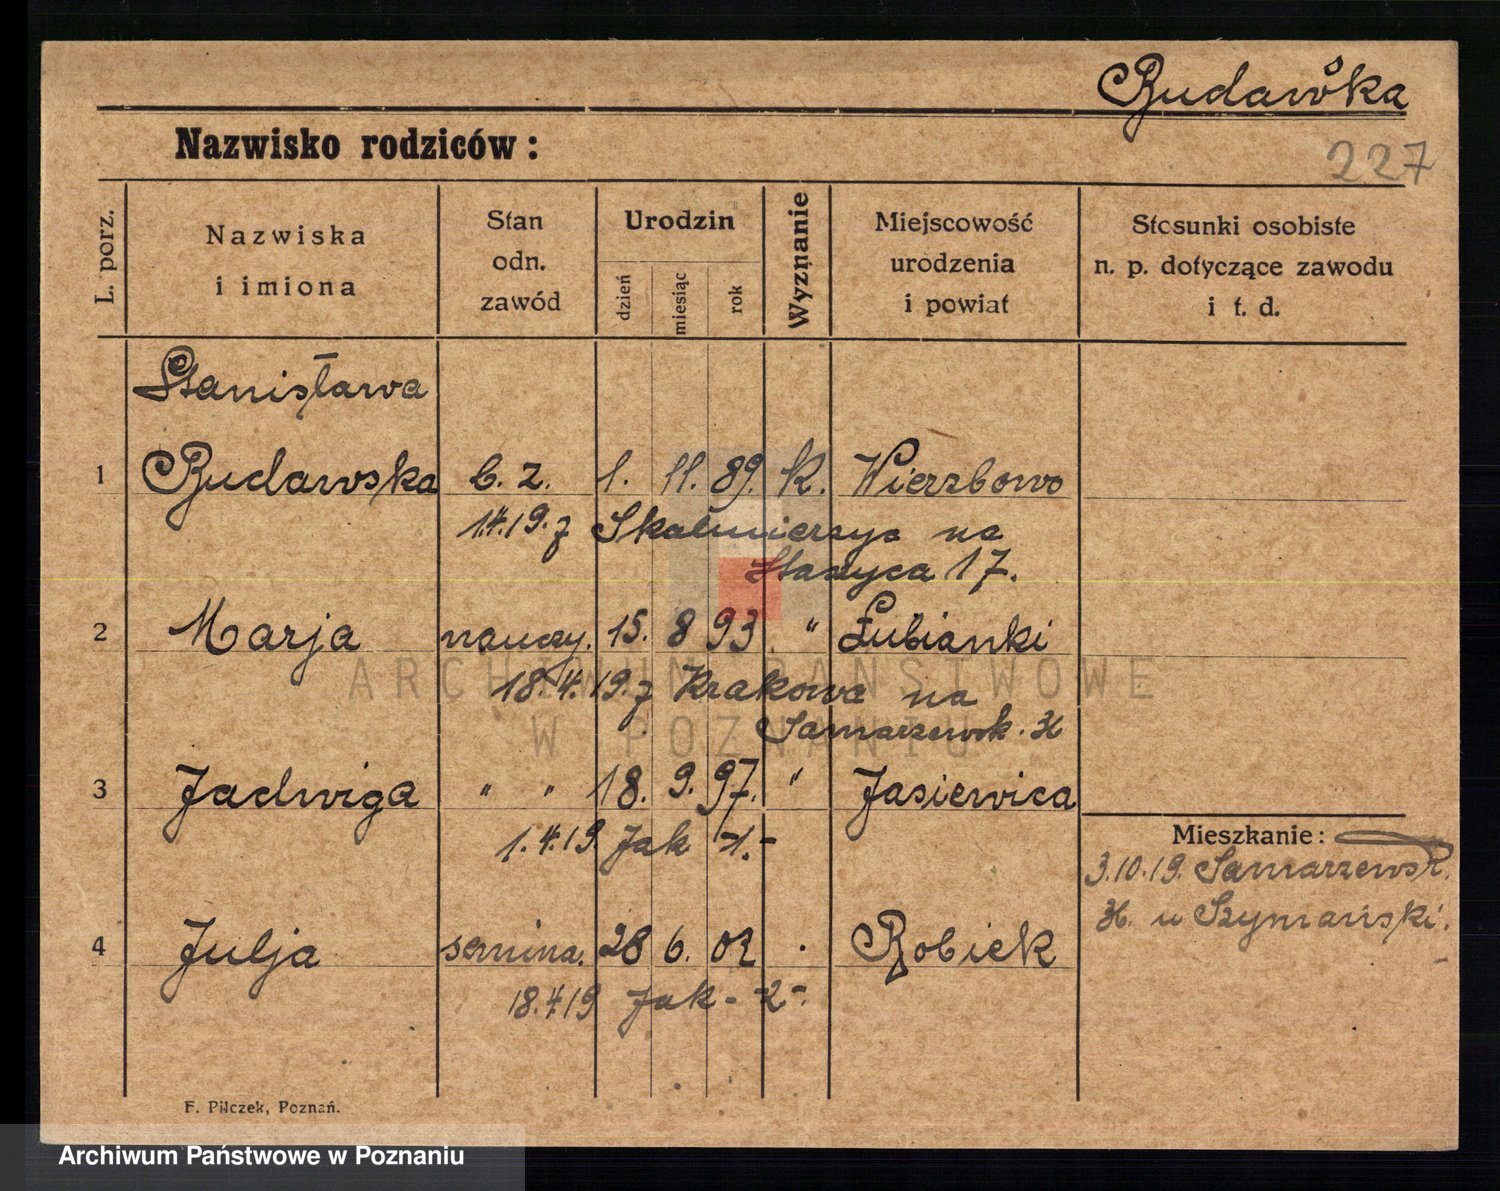 Rudawska
227
Nazwisko rodziców:
L. porz.
Nazwiska
i imiona
Stan
odn.
zawód
Urodzin
dzień
miesiąc
rok
Wyznanie
Miejscowość
urodzenia
i powiat
Stosunki osobiste
n. p. dotyczące zawodu
i t. d.
Stanisława
1 Rudawska b. z. 1. 11. 89. K. Wierzbowo
1.4.19. z Skalmierzyc na
Staszyca 17.
2 Marja nauczy. 15. 8 93 " Łubianki
18.4.19. z Krakowa na
Samarzewsk. 31
3 Jadwiga " " 18. 9. 97. " Jasiewica
1.4.19 Jak -1.-
Mieszkanie:
3.10.19. Samarzewsk.
31. u Szymański.
4 Julja semina. 28 6. 02 . Robiek
18.4.19 Jak - -2-.
F. Pilczek, Poznań.
ARCHIWUM PAŃSTWOWE
W POZNANIU
Archiwum Państwowe w Poznaniu